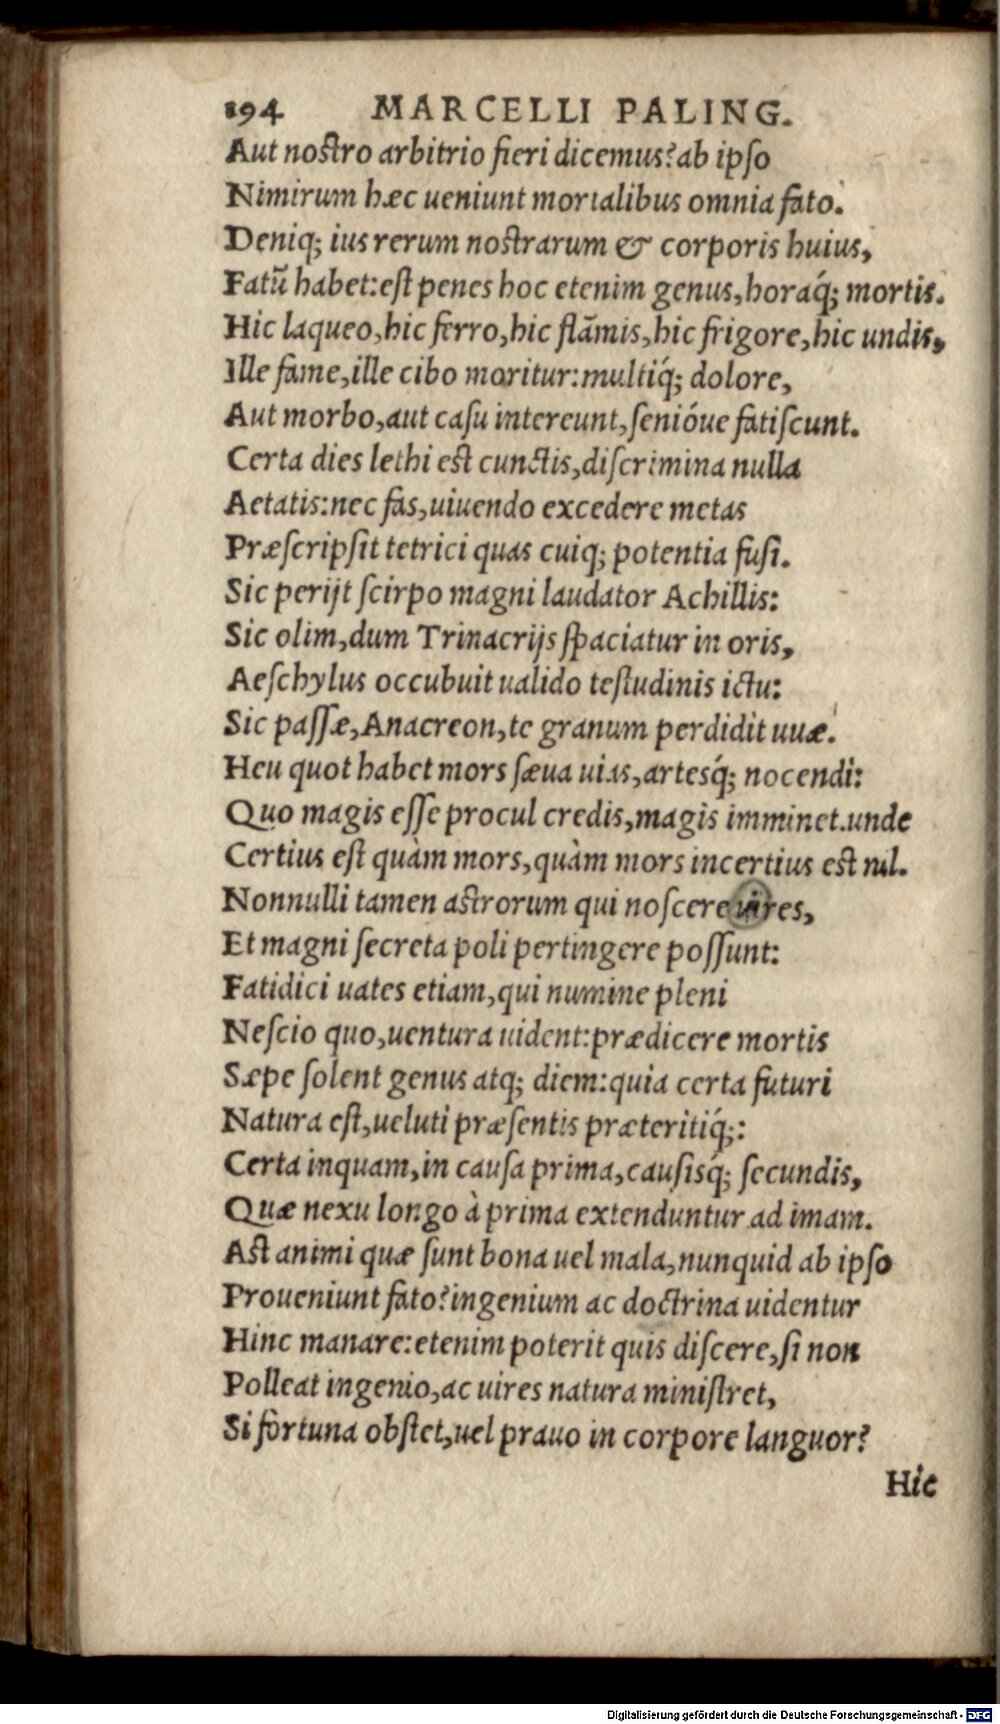 194 MARCELLI PALING.
Aut nostro arbitrio fieri dicemus? ab ipso
Nimirum hæc ueniunt mortalibus omnia fato.
Deniq; ius rerum nostrarum & corporis huius,
Fatū habet: est penes hoc etenim genus, horaq́; mortis.
Hic laqueo, hic ferro, hic flāmis, hic frigore, hic undis,
Ille fame, ille cibo moritur: multiq́; dolore,
Aut morbo, aut casu intereunt, senióue fatiscunt.
Certa dies lethi est cunctis, discrimina nulla
Aetatis: nec fas, uiuendo excedere metas
Præscripsit tetrici quas cuiq; potentia fusi.
Sic perijt scirpo magni laudator Achillis:
Sic olim, dum Trinacrijs spaciatur in oris,
Aeschylus occubuit ualido testudinis ictu:
Sic passæ, Anacreon, te granum perdidit uuæ.
Heu quot habet mors sæua uias, artesq́; nocendi:
Quo magis esse procul credis, magis imminet. unde
Certius est quàm mors, quàm mors incertius est nil.
Nonnulli tamen astrorum qui noscere uires,
Et magni secreta poli pertingere possunt:
Fatidici uates etiam, qui numine pleni
Nescio quo, uentura uident: prædicere mortis
Sæpe solent genus atq; diem: quia certa futuri
Natura est, ueluti præsentis præteritiq́;:
Certa inquam, in causa prima, causisq́; secundis,
Quæ nexu longo à prima extenduntur ad imam.
Ast animi quæ sunt bona uel mala, nunquid ab ipso
Proueniunt fato? ingenium ac doctrina uidentur
Hinc manare: etenim poterit quis discere, si non
Polleat ingenio, ac uires natura ministret,
Si fortuna obstet, uel prauo in corpore languor?
Hic
Digitalisierung gefördert durch die Deutsche Forschungsgemeinschaft - DFG